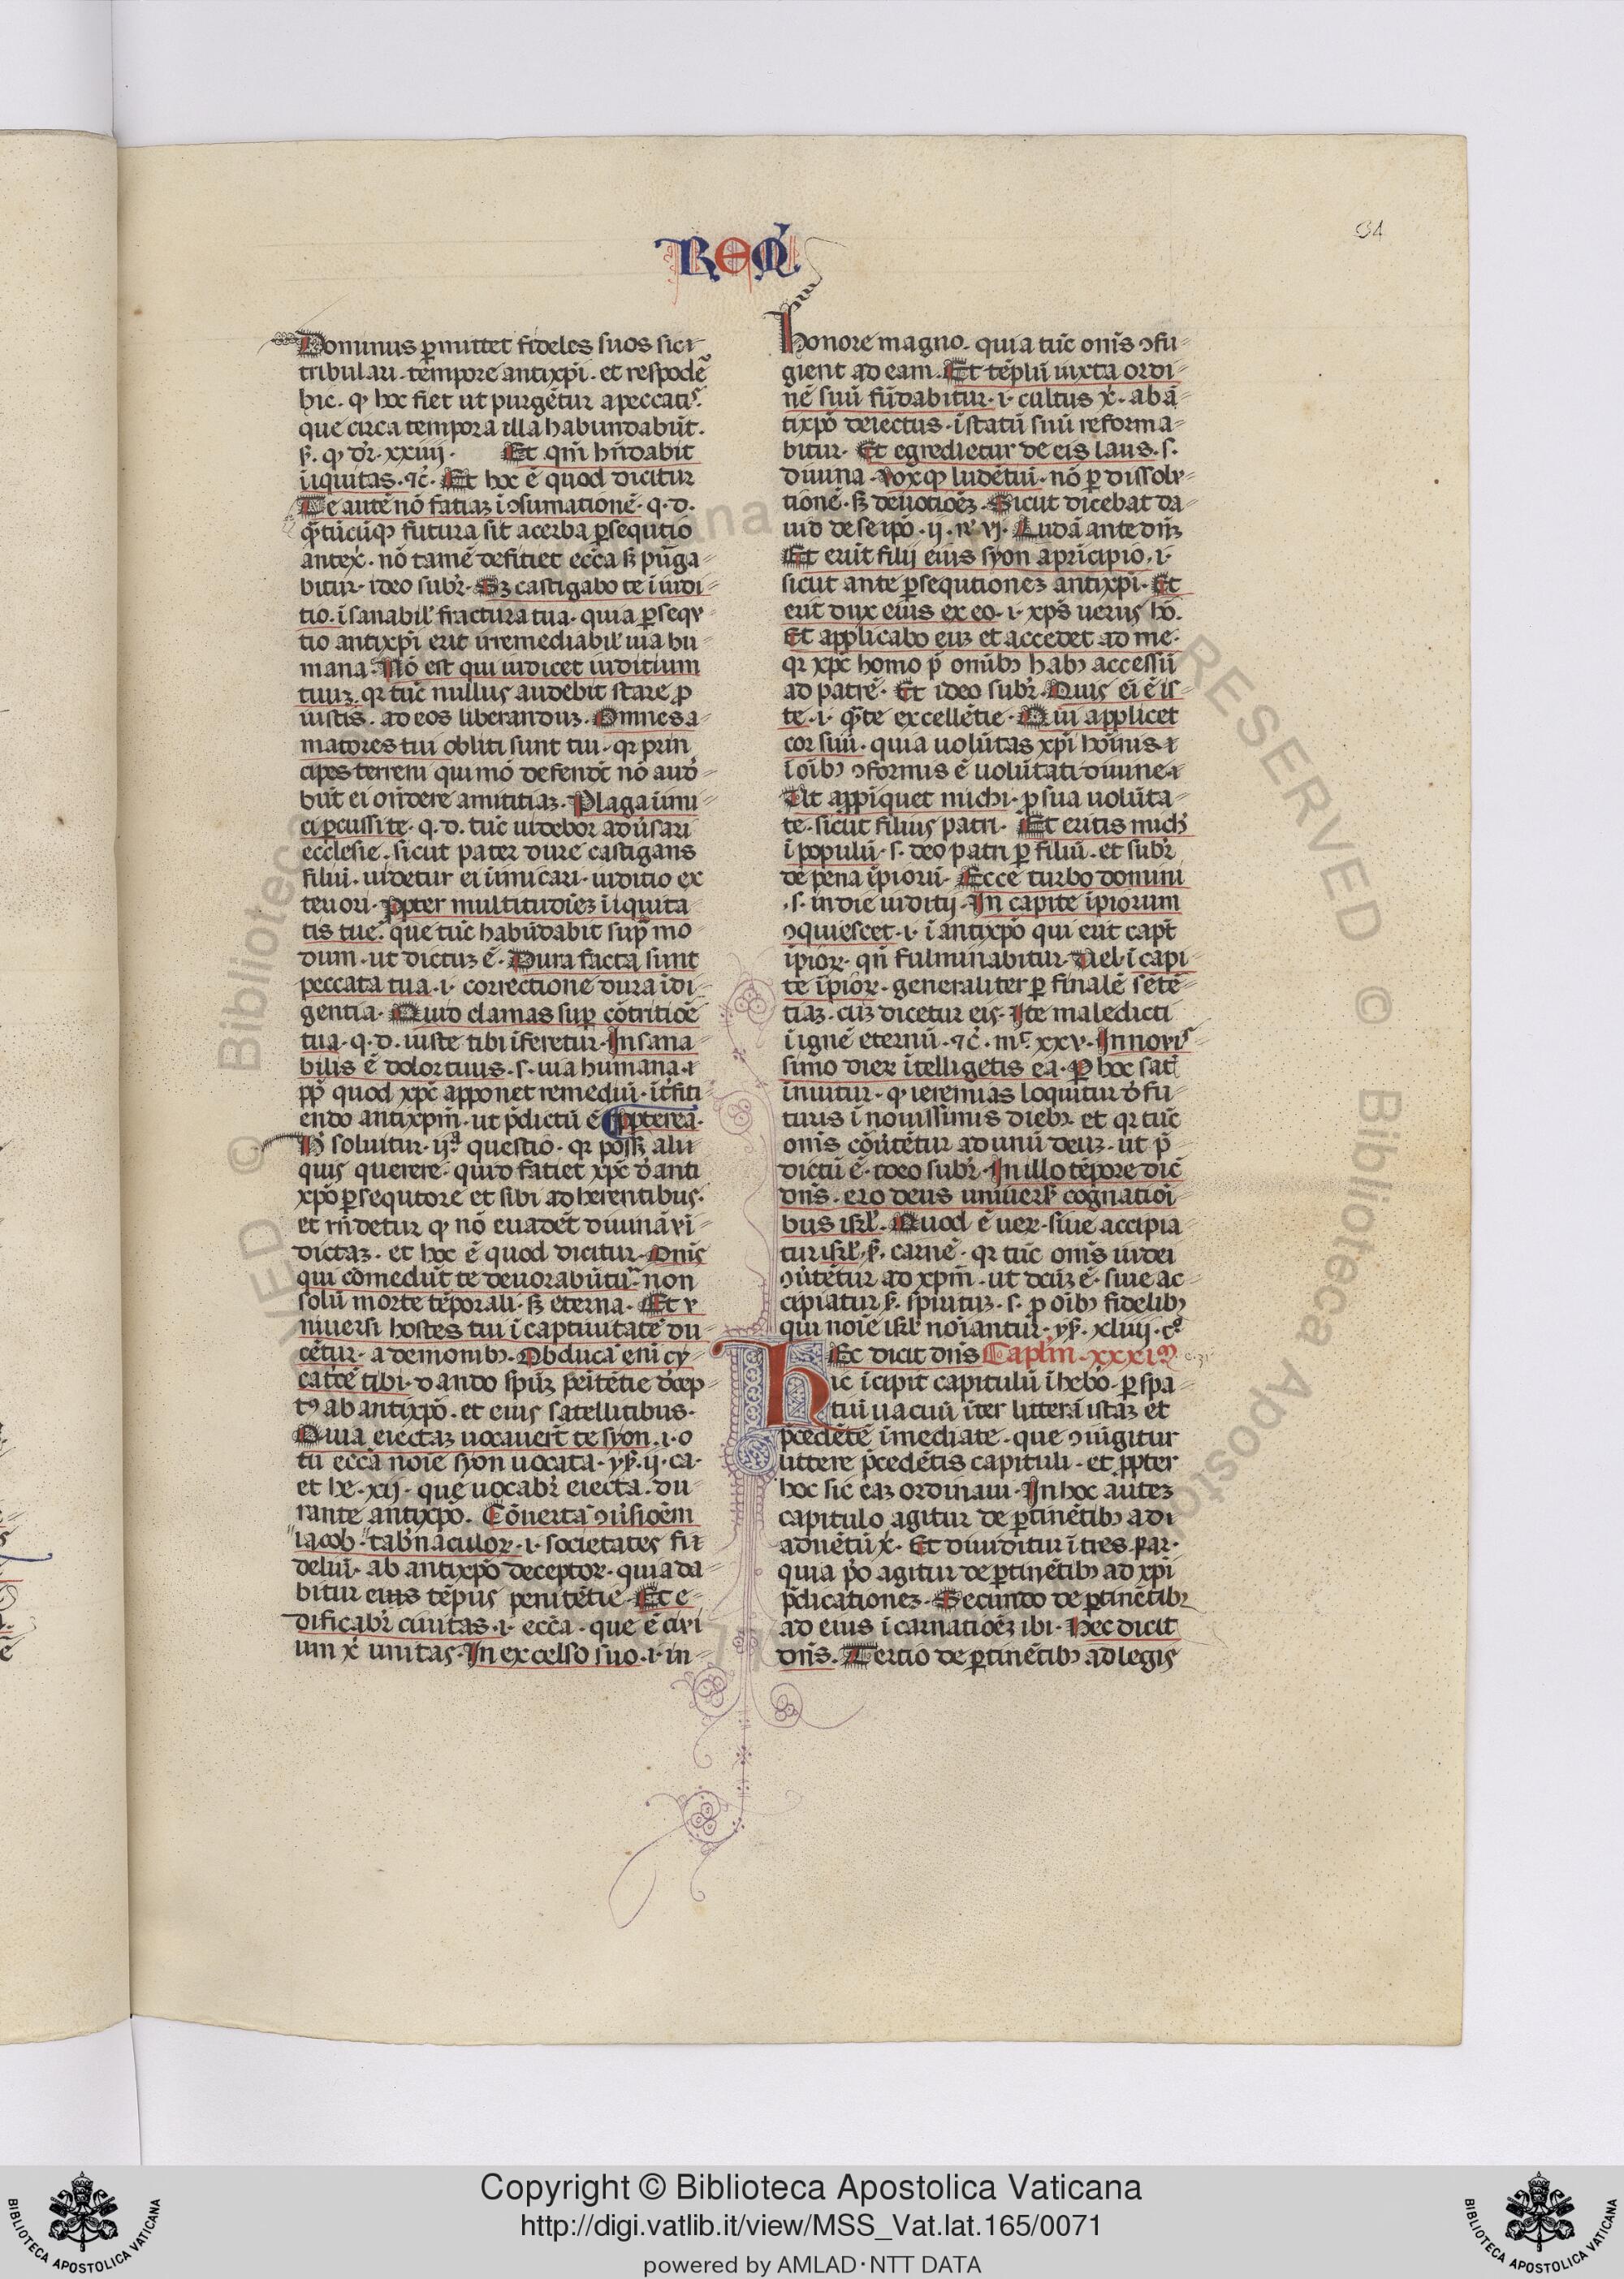 REM̃
34
Dominus ꝑmittet fideles suos sic̄
tribulari · tempore antixp̄i · et respōdē
hic · ꝙ hoc fiet ut purgētur a peccatis
que circa tempora illa habundabūt ·
xxiiii · Et qm̄ hūdabit
iiquitas · ⁊c̄ · Et hoc ē quod dicitur
Te autē nō fatiaꝫ ī ↄsumationē · q · d ·
q̄tūcūqꝫ futura sit acerba ꝑsequtio
antex̄ · nō tamē defitiet eccā sꝫ pūga-
bitur · ideo subr̄ · Sꝫ castigabo te ī iudi-
tio · īsanabil̄ fractura tua · quia ꝑsequ
tio antixp̄i erit irremediabil̄ uia hu-
mana · Nō est qui iudicet iuditium
tuuꝫ · qꝛ tūc nullus audebit stare ꝓ
iustis · ad eos liberanduꝫ · Omnes a-
matores tui obliti sunt tui · qꝛ prin
cipes terreni qui mō defendūt nō aud-
būt ei ondere amititiaꝫ · Plaga inimi-
ci ꝑcussi te · q · d · tūc uidebor adūsari
ecclesie · sicut pater dure castigans
filiū · uidetur ei inimicari · iuditio ex
teriori · ꝓpter multitudīeꝫ iiquita
tis tue · que tūc habūdabit sup̄ mo
dum · ut dictuꝫ ē · Dura facta sunt
peccata tua · i · correctione dura īdi-
gentia · Quid clamas suꝑ cōtritiōē
tua · q · d · iuste tibi īferetur · Insana-
bilis ē dolor tuus · s · uia humana · i
ꝓp̄ quod xp̄c apponet remediū · īt̄fiti
endo antixpm̄ · ut p̄dictū ē ꝓpterea ·
H̄ soluitur · ijᵃ questio · qꝛ posꝫ ali
quis querere · quid fatiet xp̄c d̄ anti
xp̄o ꝑsequtore et sibi adherentibus ·
et rn̄detur ꝙ nō euadēt diuinā vi-
dictaꝫ · et hoc ē quod dicitur · Om̄is
qui cōmedūt te deuorabūtur · non
solū morte tēporali · sꝫ eterna · Et v
niuersi hostes tui ī captiuitatē du
cētur · a demonibꝫ · Obducā eni cy-
catcē tibi · dando spūꝫ peītētie d̄cep-
tꝰ ab antixp̄o · et eius satellitibus ·
Quia eiectaꝫ uocauerūt te syon · i · o
tu eccā noīe syon uocata · ys̄ · ij · ca ·
et he · xij · que uocabr̄ eiecta · du-
rante antixp̄o · Cōuertā ↄūsioēm
iacob · tab̄naculoꝝ · i · societates fi
deliū · ab antixp̄o deceptoꝝ · quia da
bitur eius tēpus penitētie · Et e-
dificabr̄ ciuitas · i · eccā · que ē ciui
um x̄ unitas · In excelso suo · i · in-
honore magno · quia tūc om̄s ↄfu-
gient ad eam · Et tēplū iuxta ordi-
nē suū fūdabitur · i · cultus x̄ · ab ā
tixp̄o deiectus · ī statū suū reforma-
bitur · Et egredietur de eis laus · s ·
diuina · voxqꝫ ludētiū · nō ꝑ dissolu-
tionē · sꝫ deuotiōeꝫ · Sicut dicebat da
uid de seip̄o · ij · r̄ · vj · Ludā ante dn̄ꝫ
Et erūt filij eius syon a prīcipio · i ·
sicut ante ꝑsequtioneꝫ antixp̄i · Et
erit dux eius ex eo · i · xp̄s uerus hō ·
Et applicabo euꝫ et accedet ad me ·
qꝛ xp̄c homo p̄ omnibꝫ habꝫ accessū
ad patrē · Et ideo subr̄ · Quis eī ē is-
te · i · q̄te excellētie · Qui applicet
cor suū · quia uolūtas xp̄i hoīnis · i
ī oībꝫ ↄformis ē uolūtati diuine · i
Ut appīquet michi · ꝓ sua uolūta-
te · sicut filius patri · Et eritis mich
ī populū · s · deo patri ꝑ filiū · et subr̄
de pena īpiorū · Ecce turbo domini
· s · in die iuditij · In capite īpiorum
ↄquiescet · i · ī antixp̄o qui erit capt̄
īpioꝝ · qn̄ fulminabitur · Vel ī capi-
te īpioꝝ · generaliter ꝑ finalē sētē-
tiaꝫ · cūꝫ dicetur eis · Ite maledicti
ī ignē eternū · ⁊c̄ · mᵗ · xxv · In novis
simo dieꝝ ītelligetis ea · Ꝑ hoc sat̄
inuitur · ꝙ ieremias loquitur d̄ fu-
turis ī nouissimis diebꝫ · et qꝛ tūc
om̄s cōūtētur ad unū deuꝫ · ut p̄-
dictū ē · ideo subr̄ · In illo tēpore dic̄
dn̄s · ero deus uniuers̄ cognatiōi-
bus isrl̄ · Quod ē ueꝝ · siue accipia-
tur isrl̄ · s̄ · carnē · qꝛ tūc om̄s iudei
ↄūtētur ad xpm̄ · ut dcūꝫ ē · siue ac-
cipiatur s̄ · spirituꝫ · s · ꝓ oībꝫ fidelibꝫ
qui noīe isrl̄ noīantur · ys̄ · xliiij · cᵒ
HEc dicit dn̄s Caplm̄ · xxxjᵐ · c. 31
Hic īcipit capitulū ī hebō · ꝑ spa-
tiū uacuū īter litterā istaꝫ et
p̄cedētē īmediate · que ↄiūgitur
littere p̄cedētis capituli · et ꝓpter
hoc sic eaꝫ ordinaui · In hoc auteꝫ
capitulo agitur de ꝑtinētibꝫ ad
aduētū x̄ · Et diuiditur ī tres par ·
quia p̄o agitur de ꝑtinētibꝫ ad xp̄i
p̄dicationeꝫ · Secundo de ꝑtinētibꝫ
ad eius īcarnatiōeꝫ ibi · Hec dicit
dn̄s · Tertio de ꝑtinētibꝫ ad legis
Copyright © Biblioteca Apostolica Vaticana
http://digi.vatlib.it/view/MSS_Vat.lat.165/0071
powered by AMLAD · NTT DATA
BIBLIOTECA APOSTOLICA VATICANA
BIBLIOTECA APOSTOLICA VATICANA